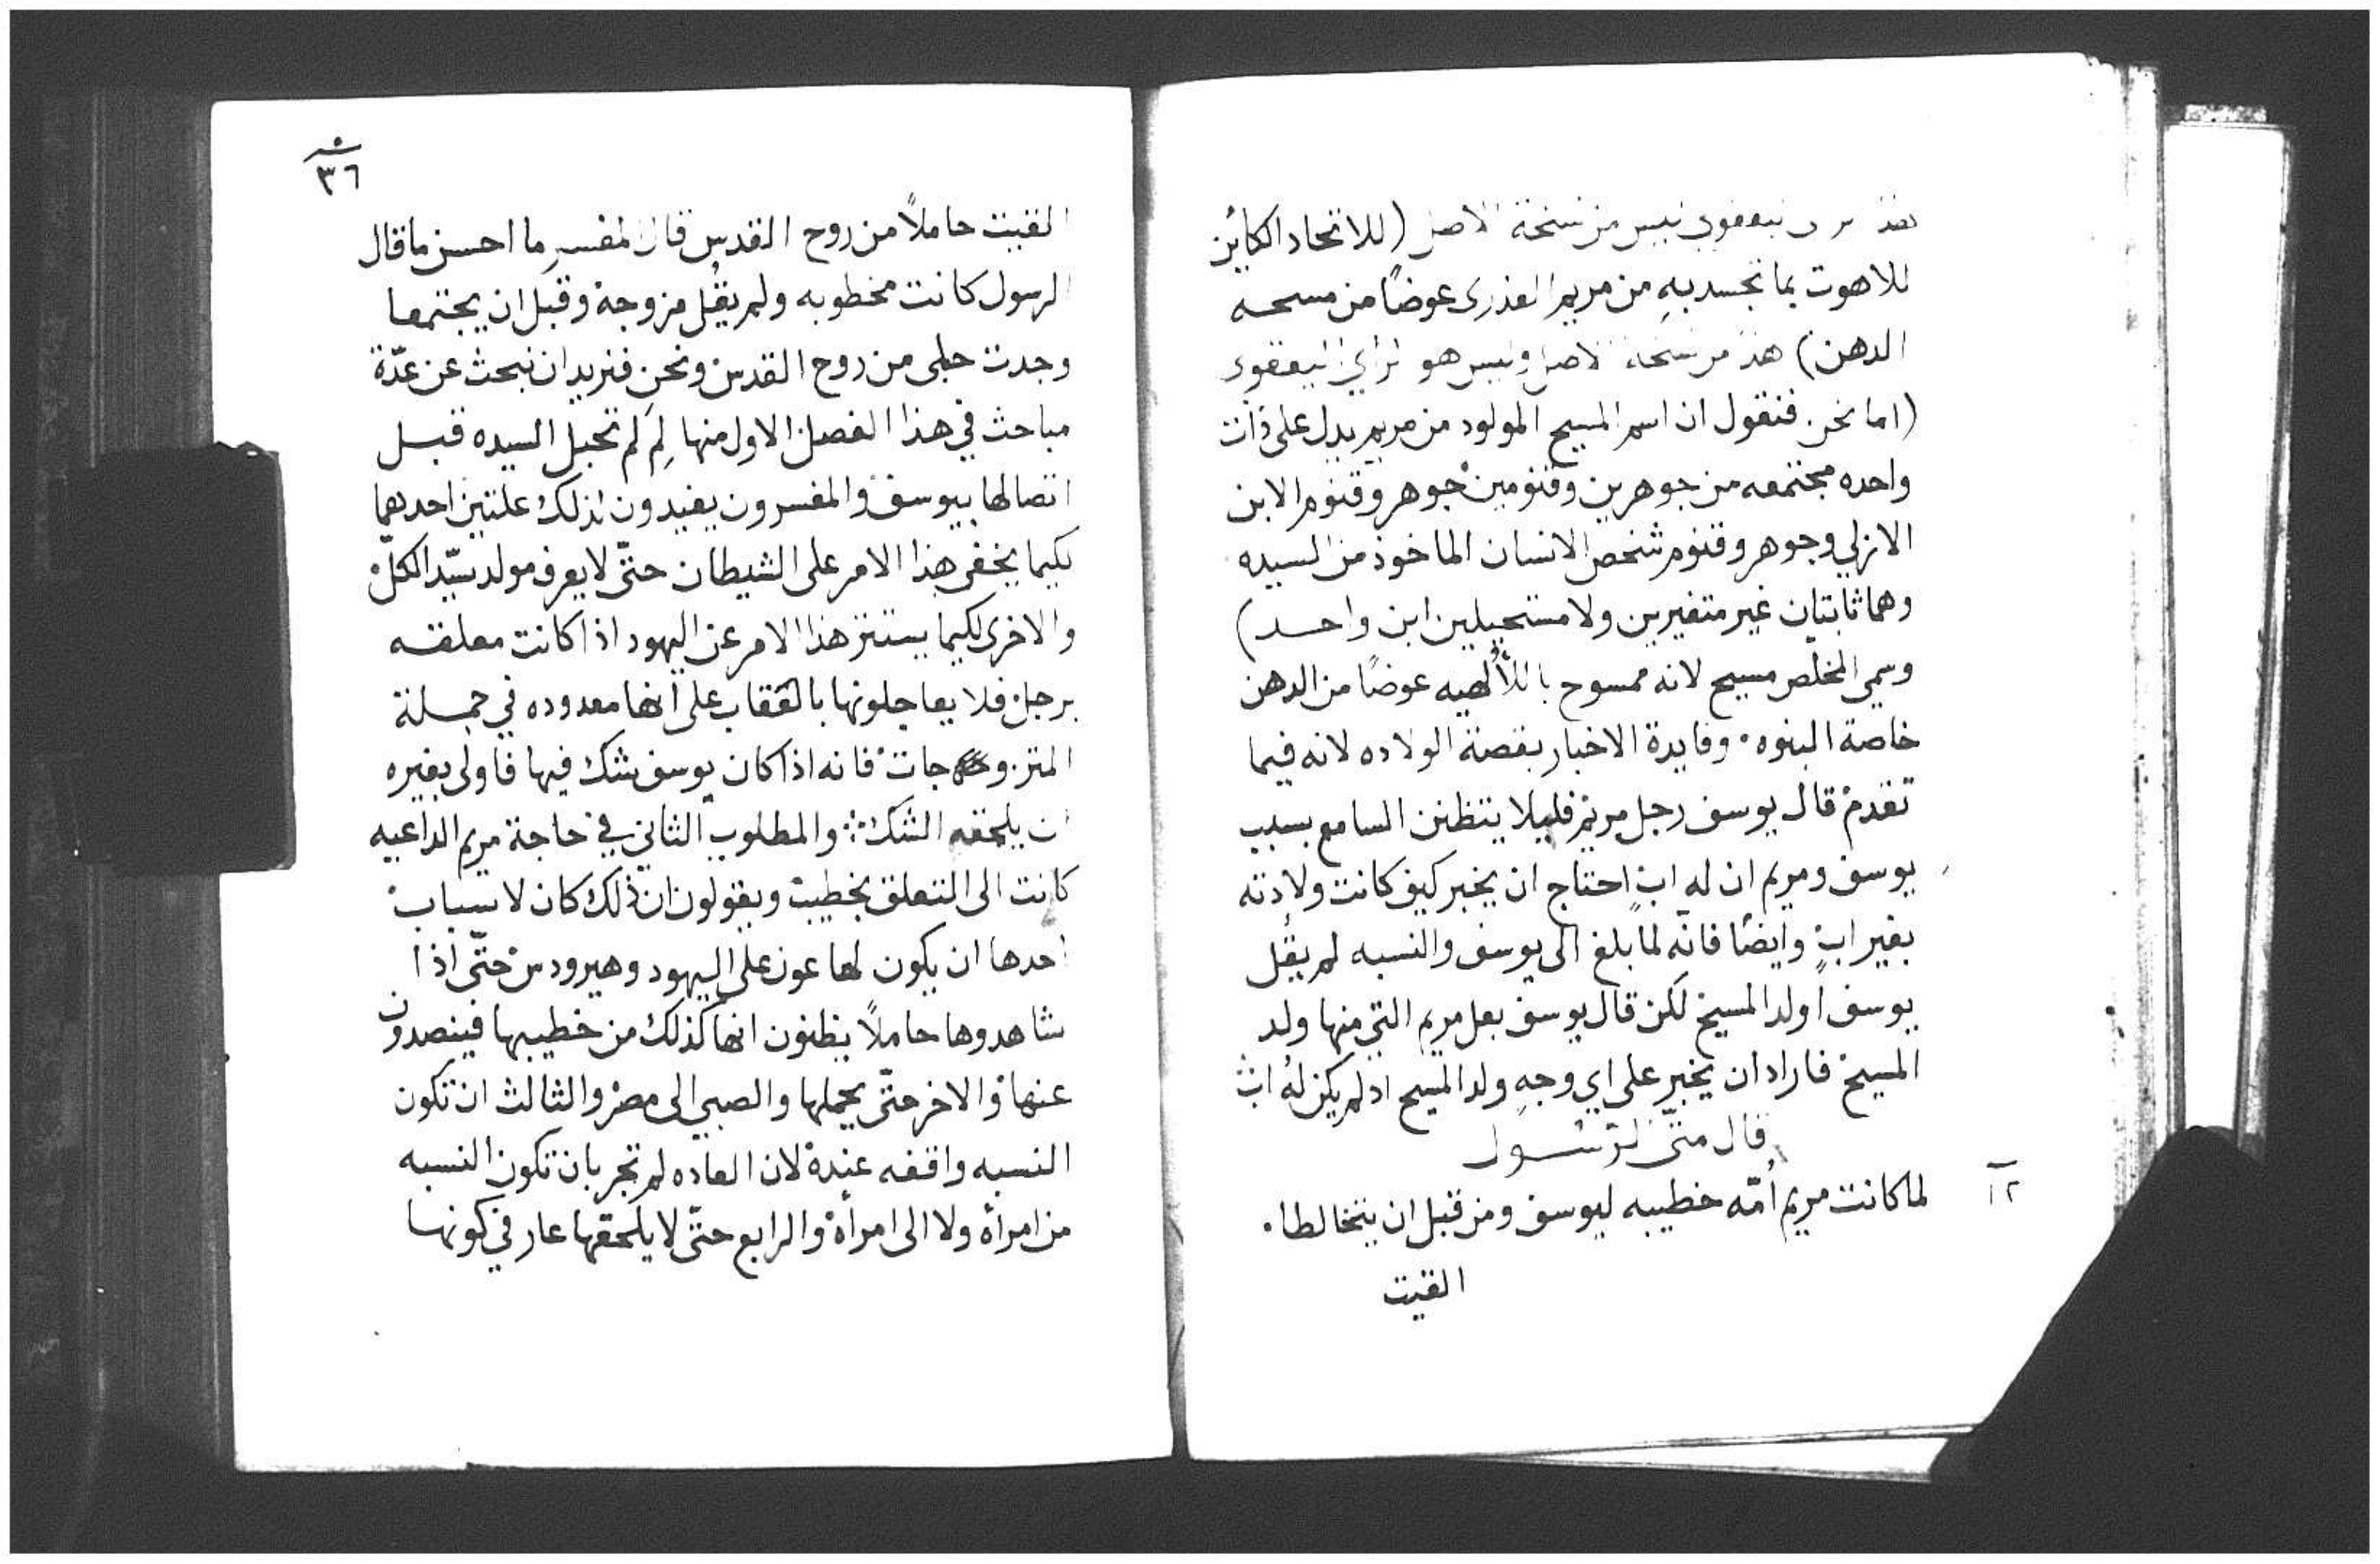 هذا راي ليعقوبي ليس من نسخة الاصل (للاتحاد الكاين
للاهوت بما تجسد بهِ من مريم العذرى عوضًا من مسحه
الدهن) هذا من نسخة الاصل وليس هو لراي اليعقوبي
(اما نحن فنقول ان اسم المسيح المولود من مريم يدل على ذات
واحده مجتمعه من جوهرين وقنومين جوهر وقنوم الابن
الازلي وجوهر وقنوم شخص الانسان الماخوذ من السيده
وهما ثابتان غير متغيرين ولا مستحيلين ابن واحد)
وسمي المخلّص مسيح لانه ممسوح باللألُهيه عوضًا من الدهن
خاصة البنوه وفايدة الاخبار بقصة الولاده لانه فيما
تقدم قال يوسف رجل مريم فليلا يتظنن السامع بسبب
يوسف ومريم ان له ابٍ احتاج ان يخبر كيف كانت ولادته
بغير ابٍ وايضًا فانّه لما بلغ الى يوسف والنسبه لم يقُل
يوسف اولد المسيح لكن قال يوسف بعل مريم التي منها ولد
المسيح فاراد ان يخبر على اي وجهٍ ولد المسيح اد لم يكن لهُ اب
قال متّى الرسول
١٢
لما كانت مريم اُمّه خطيبه ليوسف ومن قبل ان يتخالطا
القيت
٣٦
القيت حاملاً من روح القدس قال المفسرِ ما احسن ما قال
الرسول كانت مخطوبه ولم يقُل مزوجة وقبل ان يجتمعا
وجدت حبلى من روح القدس ونحن فنريد ان نبحث عن عدّة
مباحث في هذا الفصل الاول منها لِمَ لم تحبل السيده قبل
اتصالها بيوسف والمفسرون يفيدون لذلك علتين احدهما
لكيما يخفى هذا الامر على الشيطان حتّى لا يعرف مولد سيّد الكلّ
والاخرى لكيما يستتر هذا الامر عن اليهود اذا كانت معلقه
برجل فلا يعاجلونها بالعقاب على انها معدوده في جملة
المتزوجات فانه اذا كان يوسف شك فيها فاولى بغيره
ان يلحقه الشك والمطلوب الثاني في حاجة مريم الداعيه
كانت الى التعلق بخطيب ويقولون ان ذلك كان لاسباب
احدها ان يكون لها عون على اليهود وهيرودس حتّى اذا
شاهدوها حاملاً يظنون انها كذلك من خطيبها فينصدون
عنها والاخر حتّى يحملها والصبي الى مصر والثالث ان تكون
النسبه واقفه عنده لان العاده لم تجر بان تكون النسبه
من امرأه ولا الى امرأة والرابع حتّى لا يلحقها عار في كونها